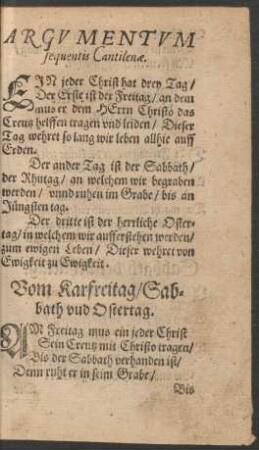 ARGVMENTVM
sequentis Cantilenæ.
EIN jeder Christ hat drey Tag/
Der Erste ist der Freitag/ an dem
mus er dem HErrn Christo das
Creutz helffen tragen vnd leiden/ Dieser
Tag wehret so lang wir leben allhie auff
Erden.
Der ander Tag ist der Sabbath/
der Rhutag/ an welchem wir begraben
werden/ vnnd ruhen im Grabe/ bis an
Jüngsten tag.
Der dritte ist der herrliche Oster-
tag/ in welchem wir aufferstehen werden/
zum ewigen Leben/ Dieser wehret von
Ewigkeit zu Ewigkeit.
Vom Karfreitag/ Sab-
bath vnd Ostertag.
AM Freitag mus ein jeder Christ
Sein Creutz mit Christo tragen/
Bis der Sabbath verhanden ist/
Denn ruht er in seim Grabe/
Bis